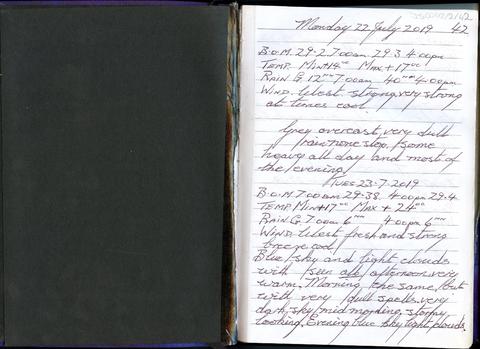 Monday 22 July 2019 42
B.O.M. 29-2. 7.00am. 29.3 4.00pm
TEMP. Min+14°c Max+17°c
RAIN.G. 12mm 7.00am 40mm 4.00pm
WIND. West. strong, very strong
at times cool.
Grey overcast, very dull
rain none stop. some
heavy all day and most of
the evening
TUES 23-7-2019
B.O.M. 7.00am 29-38. 4.00pm 29.4
TEMP Min+17°c Max + 24°c
RAIN.G. 7.00am 6mm 4.00pm 6mm
WIND. West fresh and strong
breeze cool
Blue sky and light clouds
with sun all afternoon very
warm. Morning the same, but
with very dull spells very
dark sky mid morning, stormy
looking. Evening blue sky light clouds.